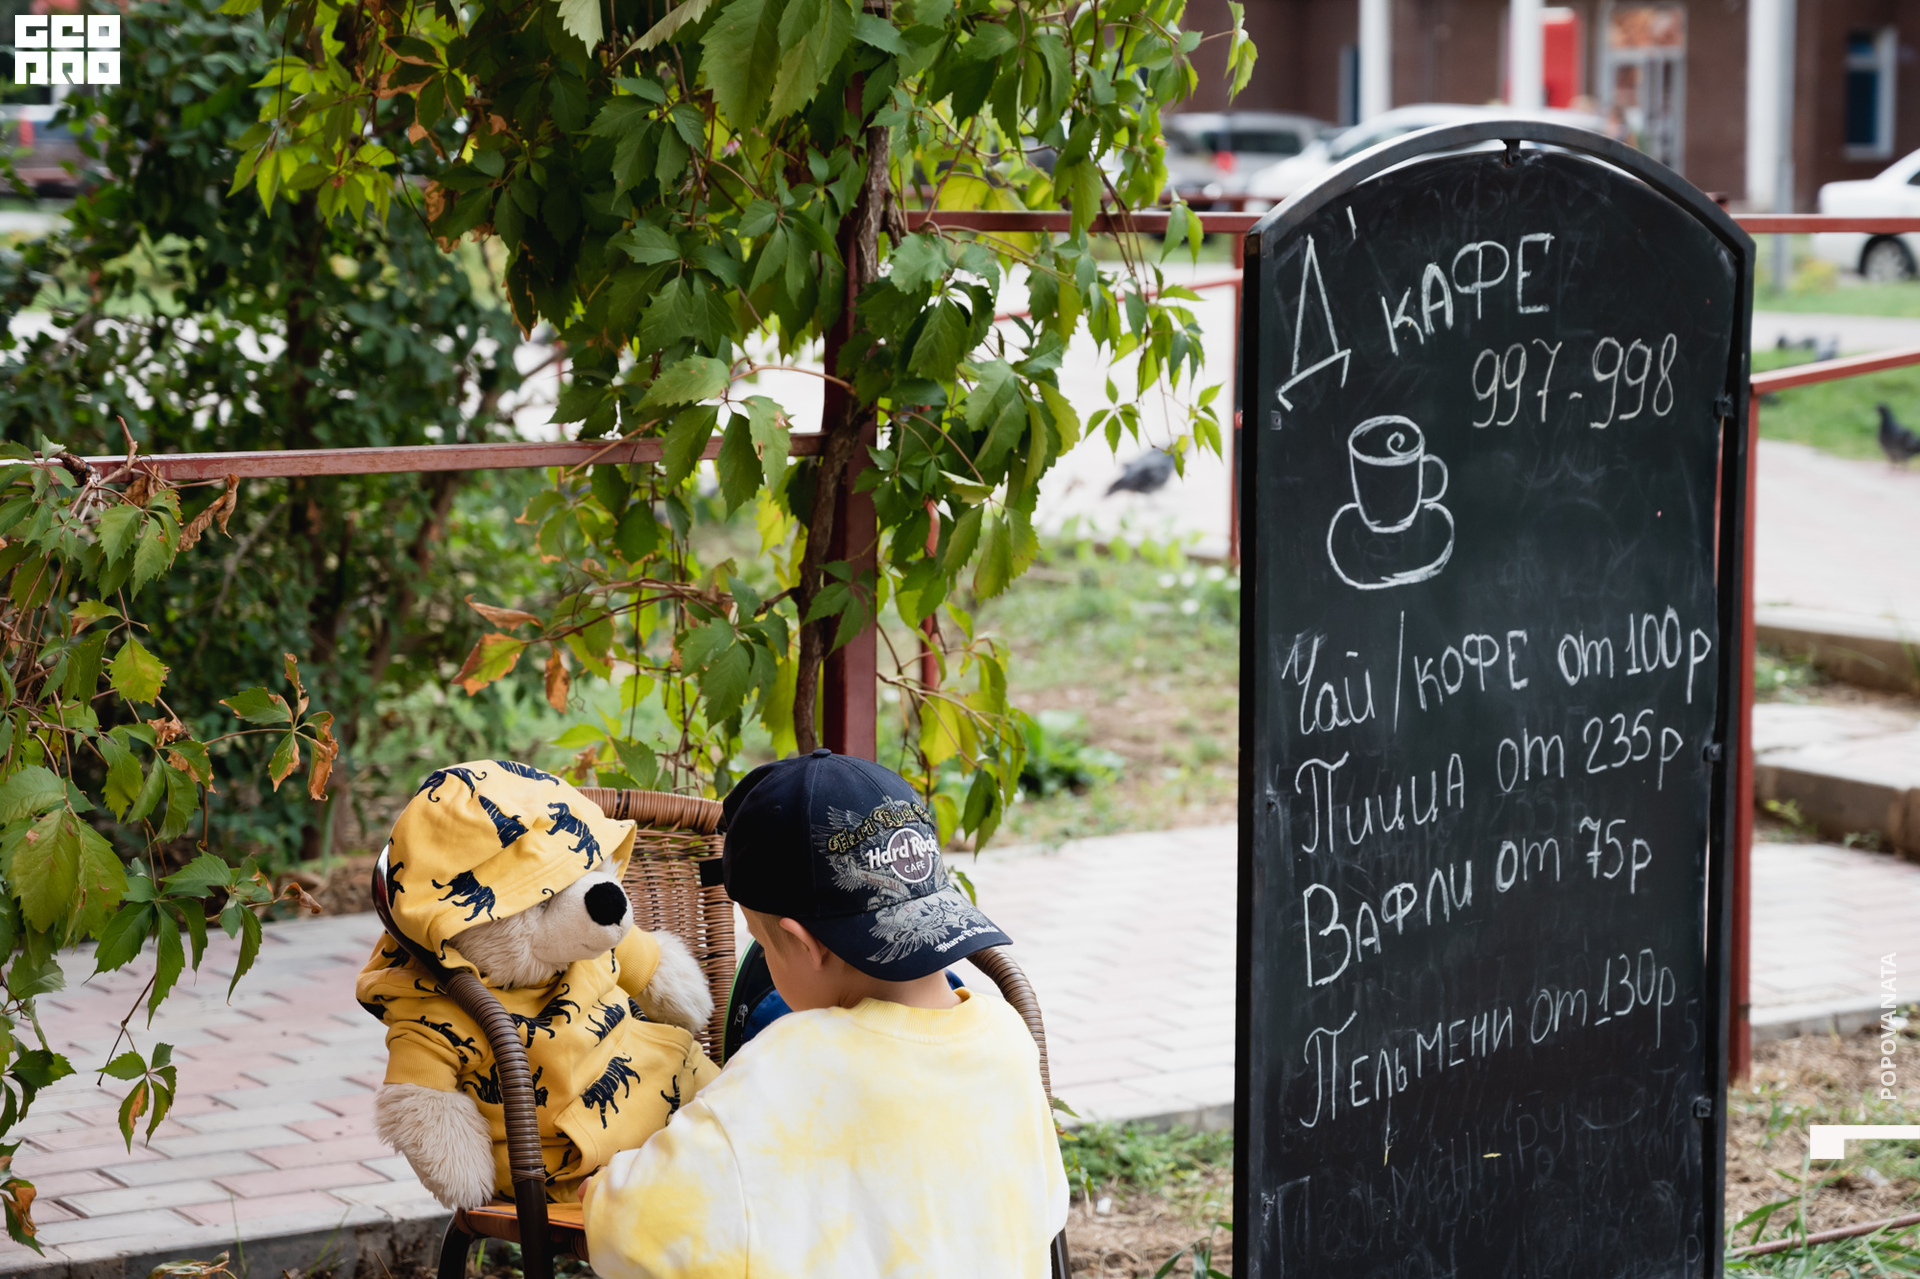 GEO
PRO
Д'КАФЕ
997-998
Чай/КОФЕ от 100р
Пицца от 235р
Вафли от 75р
Пельмени от 130р
Hard Rock
CAFE
POPOVANATA